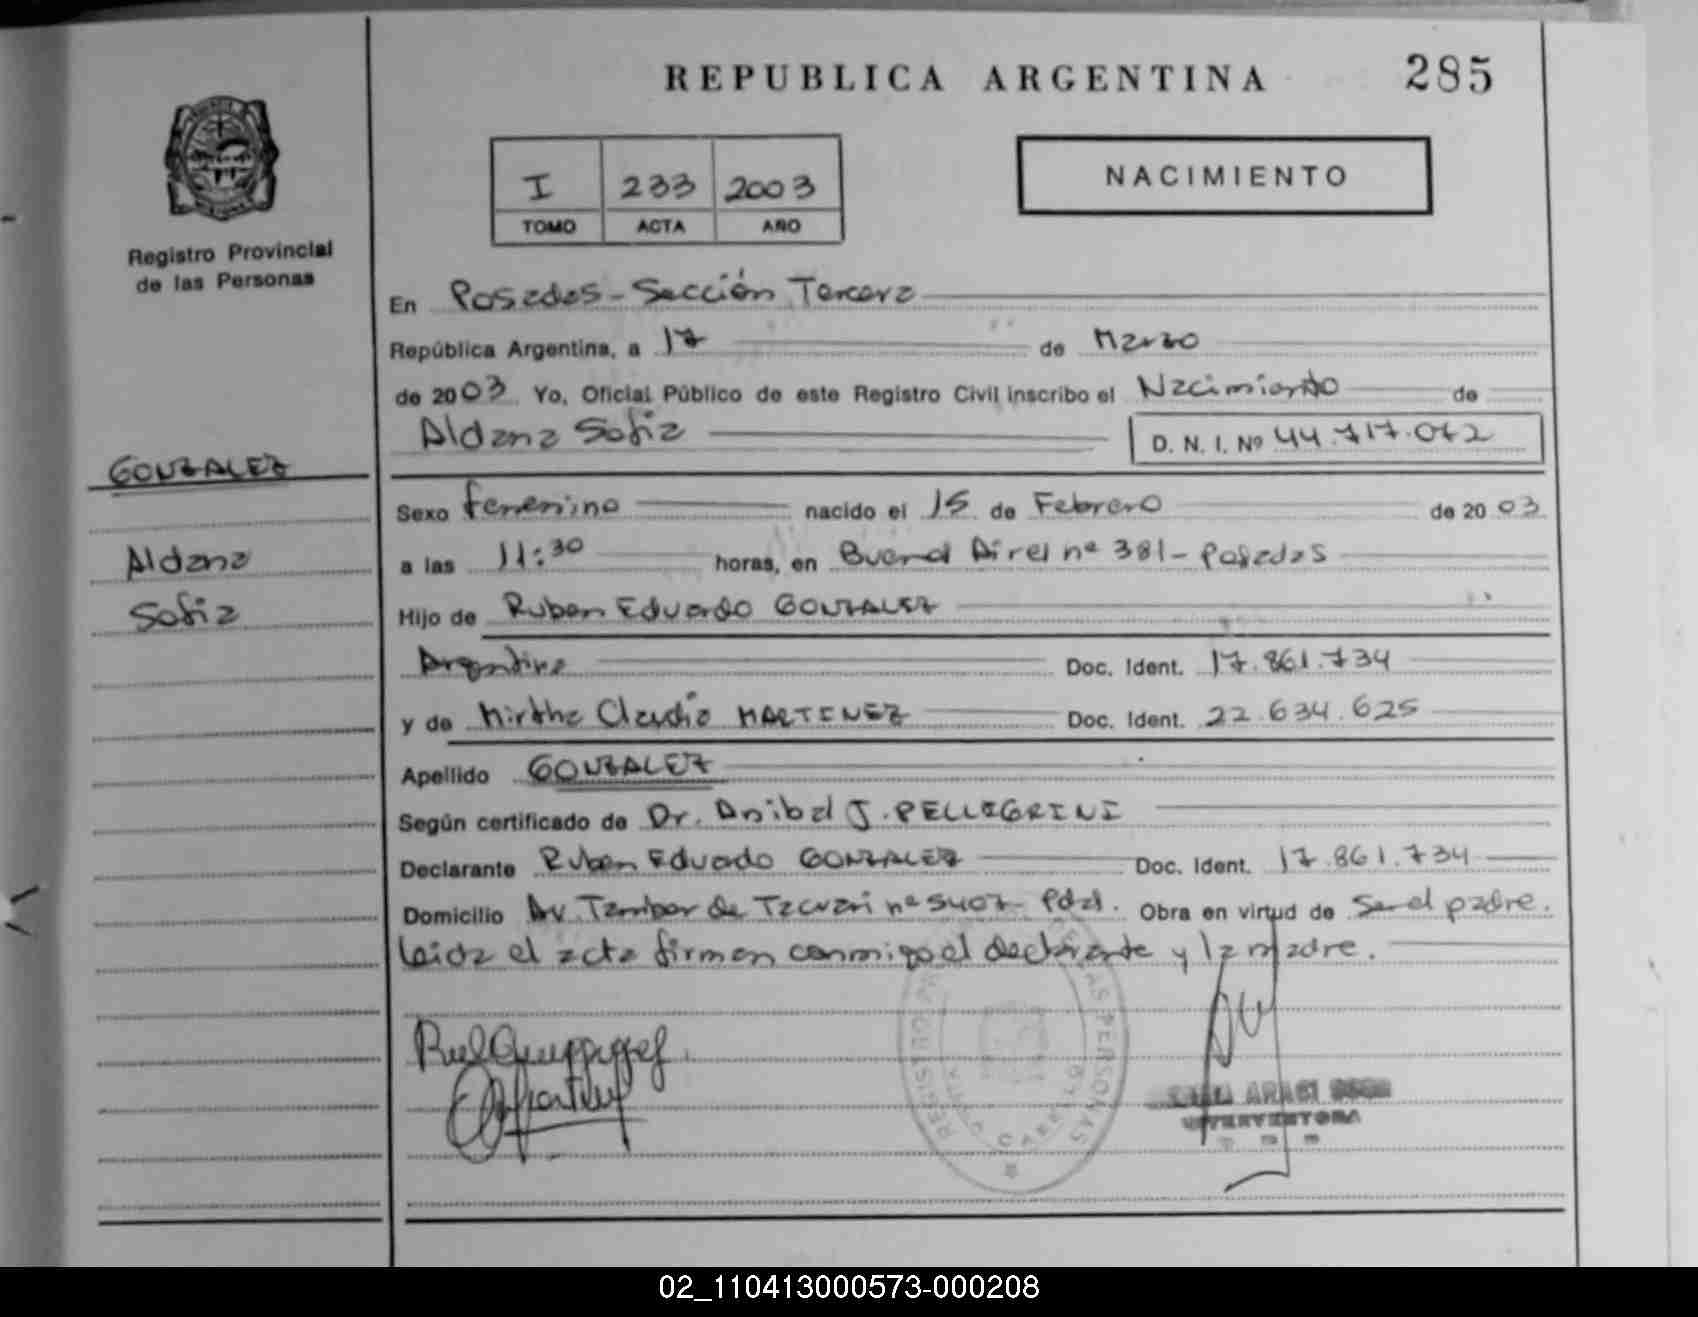 REPUBLICA ARGENTINA
285
Registro Provincial
de las Personas
I 233 2003
TOMO ACTA AÑO
NACIMIENTO
En Posadas - Sección Tercera
República Argentina, a 17 de Marzo
de 2003 Yo, Oficial Público de este Registro Civil inscribo el Nacimiento de
Aldana Sofia D. N. I. Nº 44.717.0
GONZALEZ
Aldana
Sofia
Sexo femenino nacido el 15 de Febrero de 2003
a las 11:30 horas, en Buenos Aires nº 381 - Posadas
Hijo de Ruben Eduardo GONZALEZ
Argentina Doc. Ident. 17.861.734
y de Mirtha Claudia MARTINEZ Doc. Ident. 22.634.625
Apellido GONZALEZ
Según certificado de Dr. Anibal J. PELLEGRINI
Declarante Ruben Eduardo GONZALEZ Doc. Ident. 17.861.734
Domicilio Av. Tambor de Tacuari nº 5407 - Pdas. Obra en virtud de Ser el padre.
Leida el acta firman conmigo el declarante y la madre.
ARACI
INTERVENTORA
02_110413000573-000208